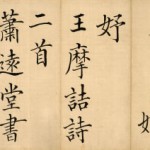 妤
王摩詰詩
二首
蕭遠堂書